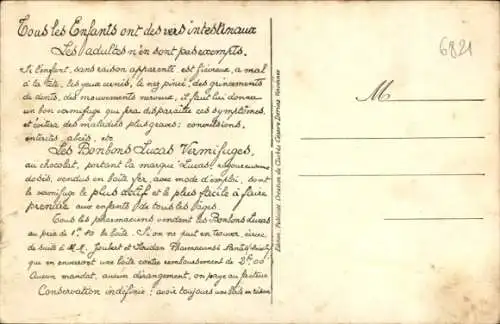 Tous les Enfants ont des vers intestinaux
Les adultes n'en sont pas exempts.
Si l'enfant, sans raison apparente est fiévreux, a mal
à la tête, les yeux cernés, le nez pincé, des grincements
de dents, des mouvements nerveux, il faut lui donner
un bon vermifuge qui fera disparaître ces symptômes,
et évitera des maladies plus graves: convulsions,
entérites, abcès, etc.
Les Bonbons Lucas Vermifuges,
au chocolat, portant la marque "Lucas", rigoureusement
dosés, vendus en boîte fer, avec mode d'emploi, sont
le vermifuge le plus actif et le plus facile à faire
prendre aux enfants de tous les âges.
Tous les pharmaciens vendent les Bonbons Lucas
au prix de 1f.80 la boîte. Si on ne peut en trouver, écrire
de suite à M.M. Joubert et Pharmaciens
qui en enverront une boîte contre remboursement de 2f.00
Aucun mandat, aucun dérangement, on paye au facteur
Conservation indéfinie: avoir toujours une boîte en réserve
Édition Publicité Direction de
M
6821